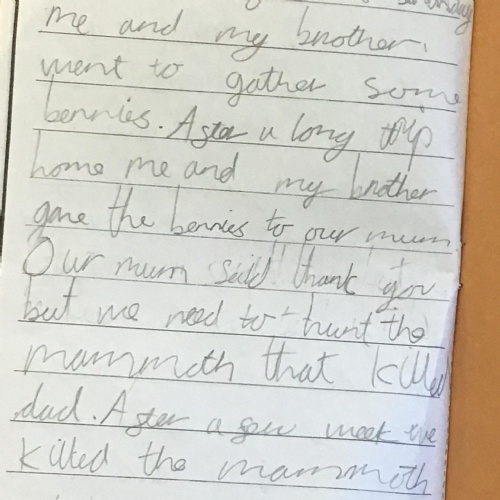 me and my brother.
went to gather some
berries. After a long trip
home me and my brother
gave the berries to our mum
Our mum said thank you
but we need to hunt the
mammoth that killed
dad. After a few week we
killed the mammoth